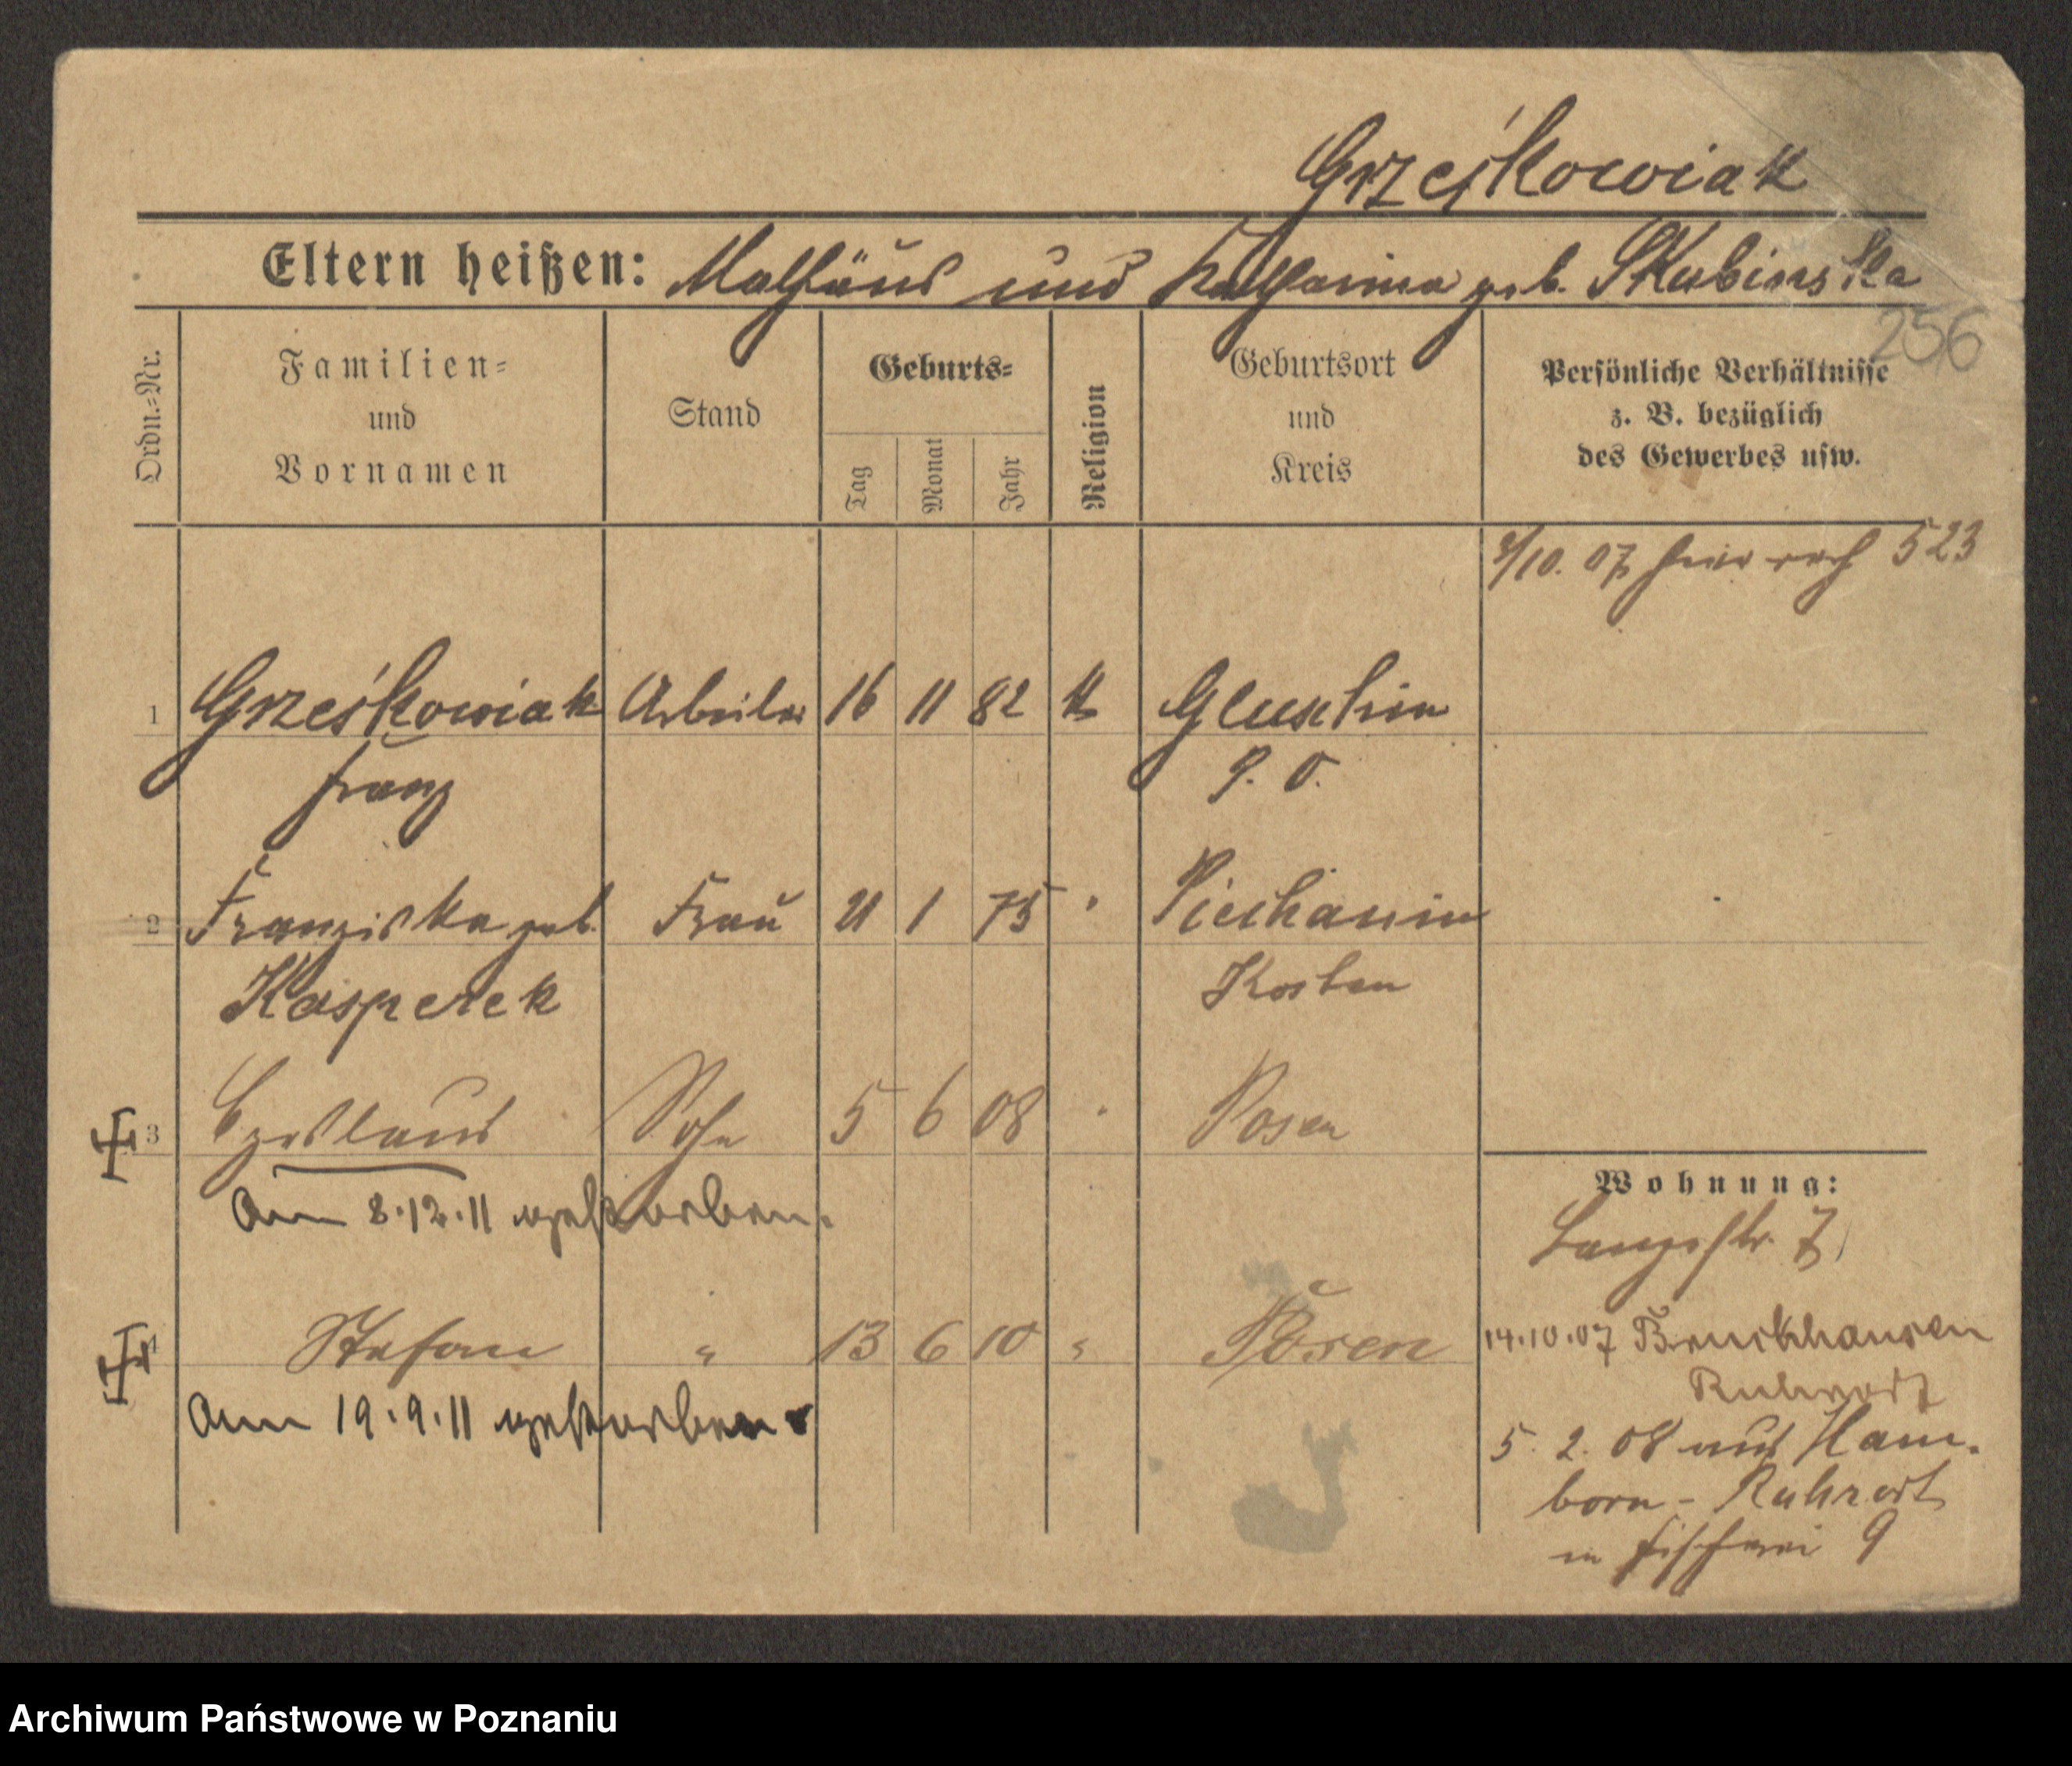 Grześkowiak
Eltern heißen: Mathäus und Katharina geb. Skubinska
256
Ordn.-Nr.
Familien-
und
Vornamen
Stand
Geburts-
Tag
Monat
Jahr
Religion
Geburtsort
und
Kreis
Persönliche Verhältnisse
z. B. bezüglich
des Gewerbes usw.
/10. 07 523
1 Grześkowiak Arbeiter 16 11 82 k Gluschin
Franz P. O.
2 Franziska geb. Frau 21 1 75 " Piechanin
Kasperek Kosten
3 Czeslaus Sohn 5 6 08 " Posen
Am 8.12.11 gestorben.
Wohnung:
Langestr. 7
4 Stefan " 13 6 10 " Posen
Am 19.9.11 gestorben.
14.10.07 Bruckhausen
Ruhrort
5. 2. 08 aus Ham-
born - Ruhrort
in Fischerei 9
Archiwum Państwowe w Poznaniu